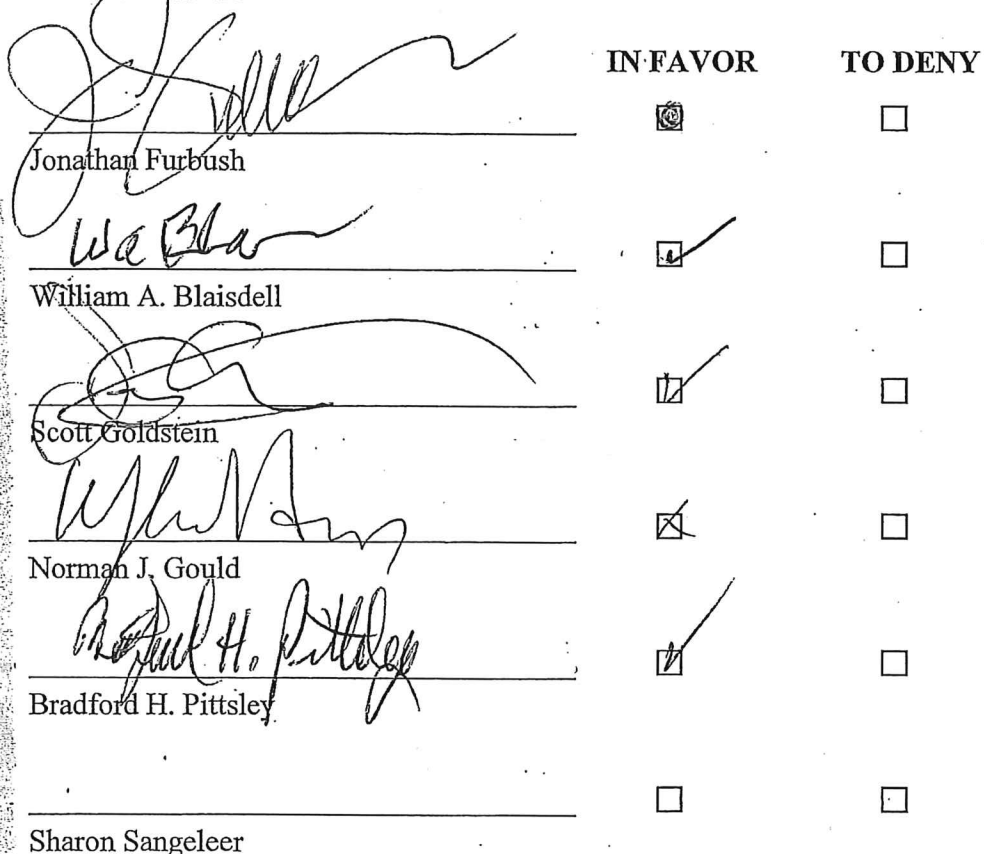 IN FAVOR TO DENY
Jonathan Furbush
William A. Blaisdell
Scott Goldstein
Norman J. Gould
Bradford H. Pittsley
Bradford H. Pittsley
Sharon Sangeleer